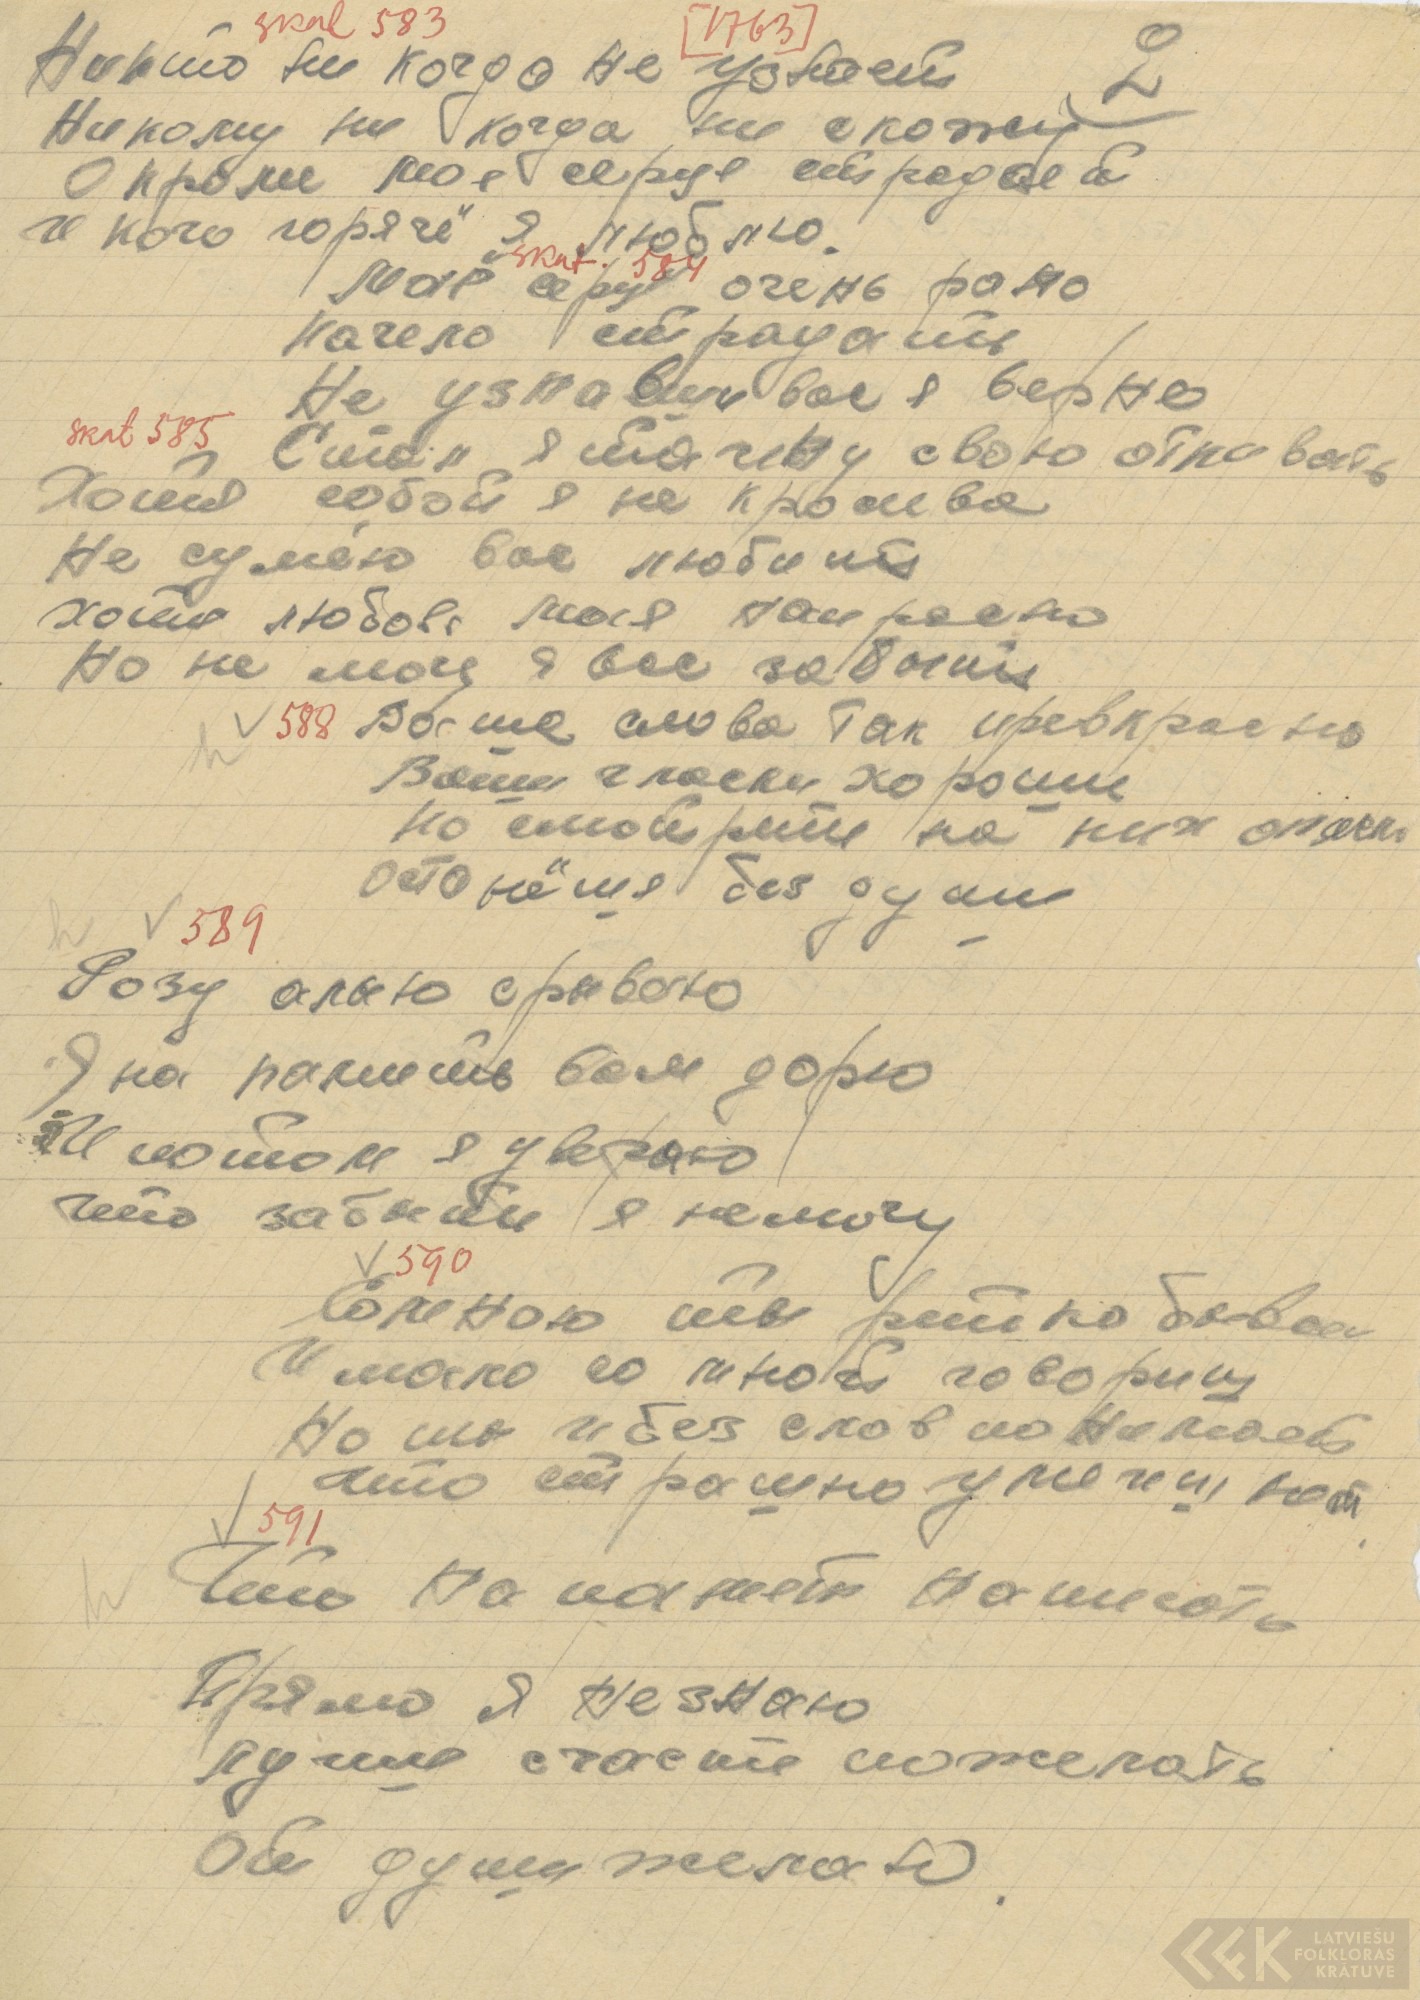 skat 583 [1763] 2
Никто ни когда не узнает
Никому ни когда ни скожу
О кроми мое серце страдаей
и кого горячё я люблю.
skat. 584
Маё серце очень рано
Начело страдать
Не узнавши вас я верно
skat 585
Стал я тайну свою открывать
Хотя собой я не кросива
Не сумею вас любить
хотя любовь моя напрасно
Но не могу я вас забыть
588 Ваше слова так превкрасно
Ваши гласки хороши
Но смотрите на них опасно
Останёшя без души
589
Розу алыю срываю
Я на памить вам дорю
И потом я уверяю
что забыть я немогу
590
Соменою ты ретко бывае
И мало со мной говориш
Но ты и без слов понимаеш
что страшно умечиш нот
591
Что На паметь Написать
Прямо я незнаю
лучше счасте пожелать
От души желаю.
LATVIEŠU
FOLKLORAS
KRĀTUVE